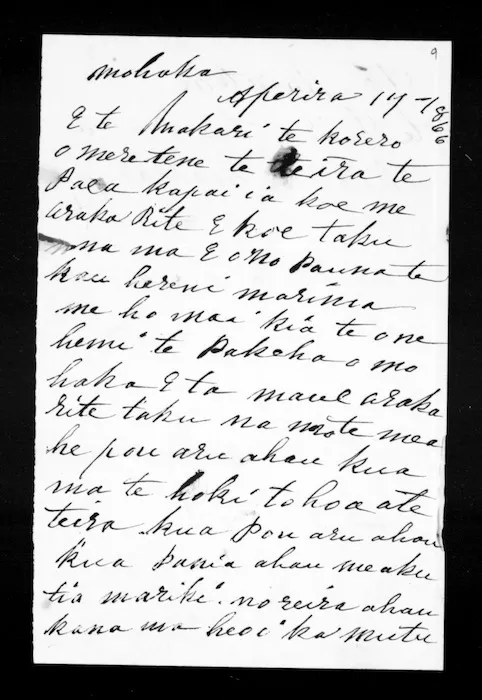 9
mohaka
Aperira 17 - 1866
E te Makari te korero
o meretene te teira te
Paea kapai ia koe me
araka Rite E koe taku
na ma E ono Pauna te
kau hereni marima
me ho mai kia te one
hemi te Pakeha o mo
haka E ta maue araka
rite taku na mote mea
he pou aru ahau kua
ma te hoki tohoa ate
teira kua pou aru ahau
kua Pania ahau meaku
tia mariki. no reira ahau
kana ma heoi ka mutu